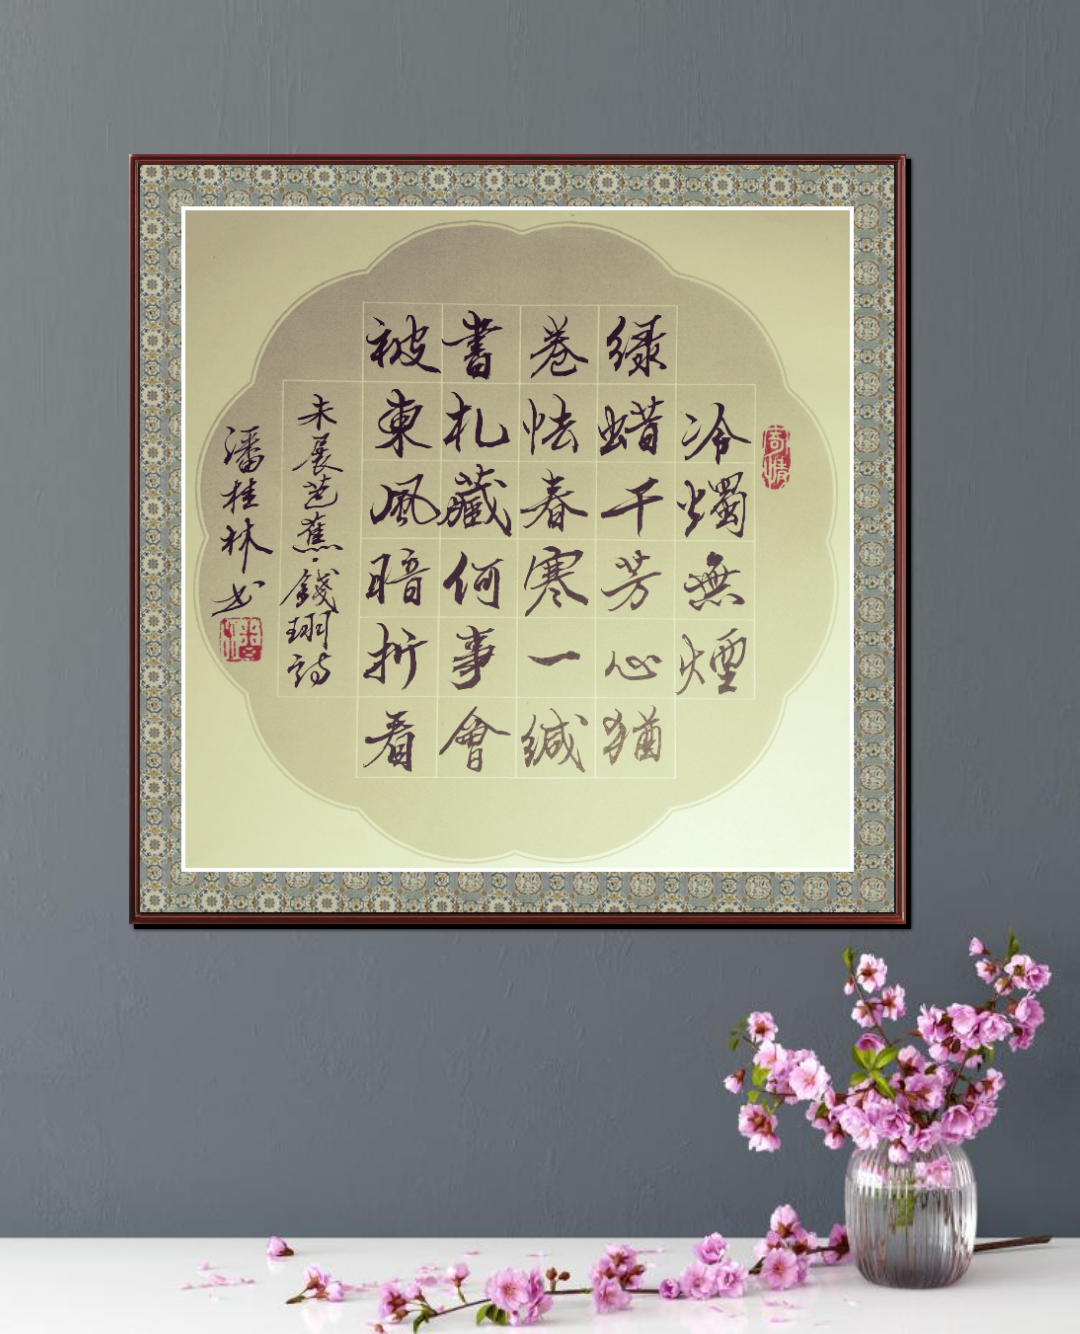 冷燭無煙
绿蜡干芳心猶
卷怯春寒一缄
書札藏何事會
被東風暗折看
未展芭蕉·錢珝詩
潘桂林书